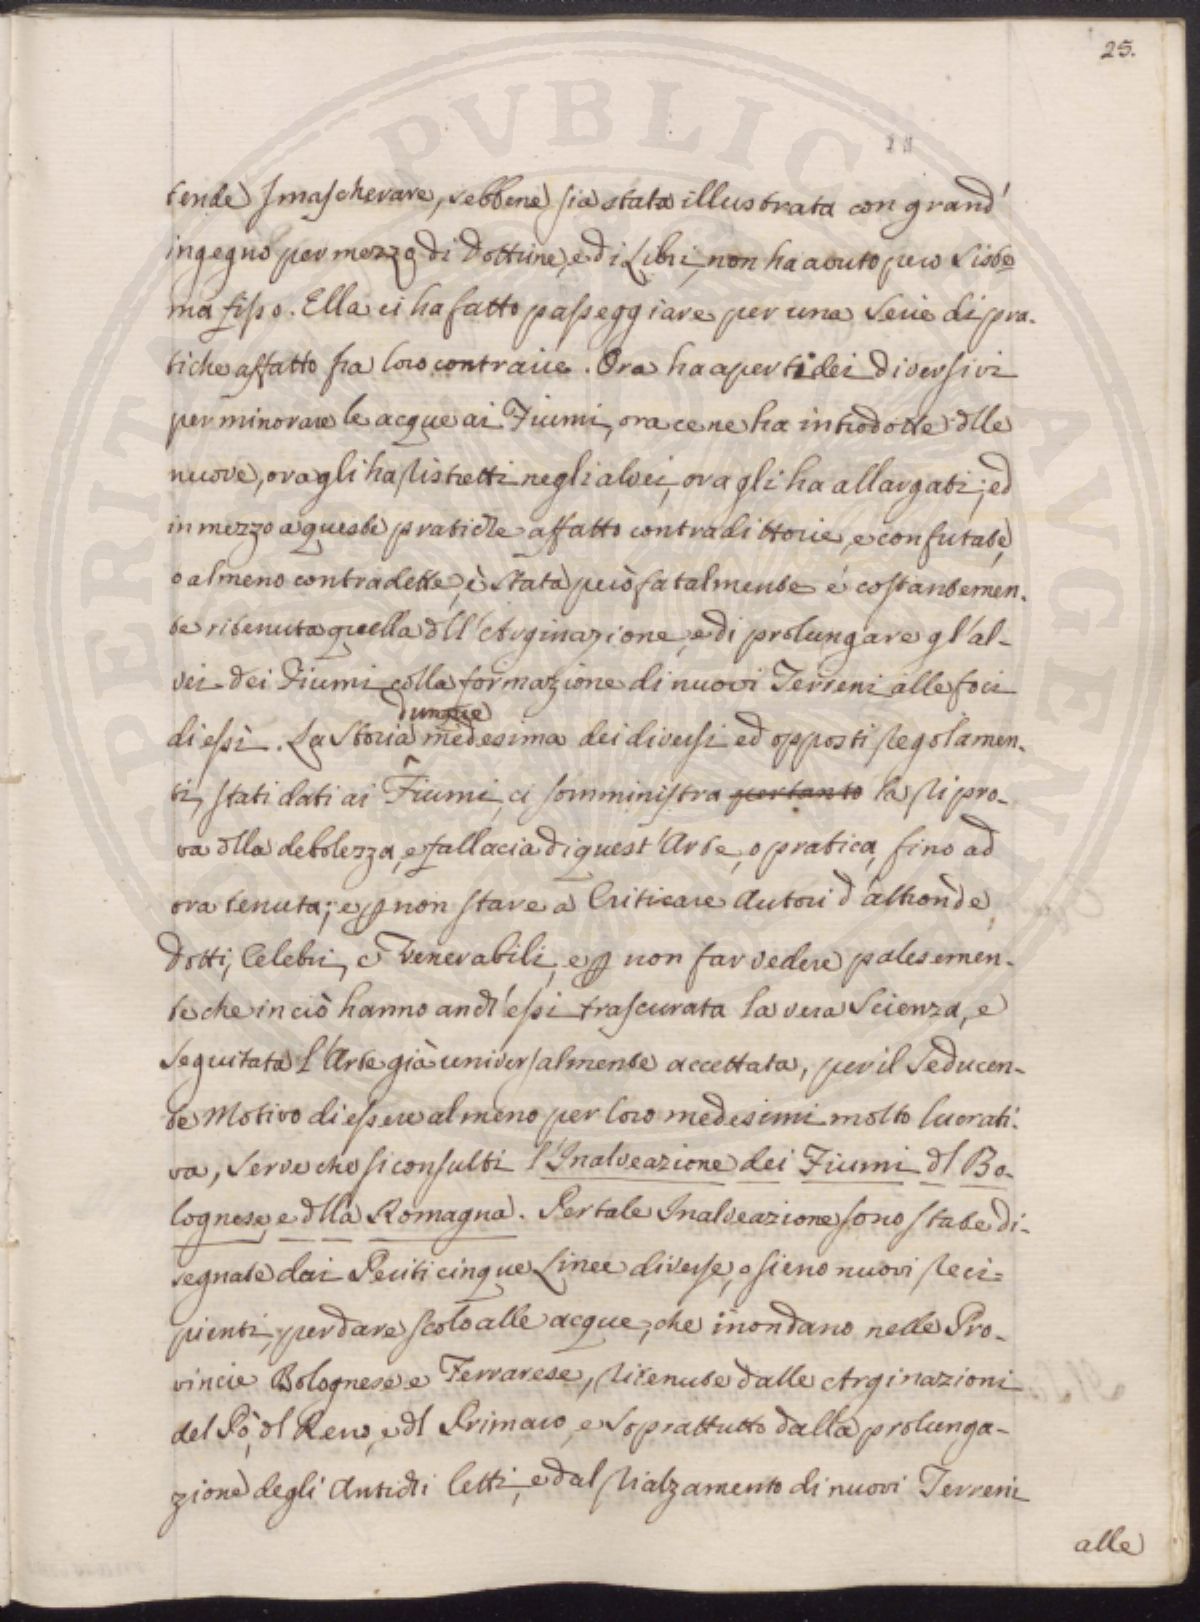 25.
tende smascherare, sebbene sia stata illustrata con grand'
ingegno per mezzo di Dottrine, e di Libri, non ha avuto però Siste
ma fisso. Ella ci ha fatto passeggiare per una Serie di pra-
tiche affatto fra loro contrarie. Ora ha aperti dei diversivi
per minorare le acque ai Fiumi, ora ce ne ha introdotte dlle
nuove, ora gli ha ristretti negli alvei, ora gli ha allargati; ed
in mezzo a queste pratiche affatto contradittorie, e confutate,
o almeno contradette, è stata però fatalmente e costantemen-
te ritenuta quella dll'Arginazione, e di prolungare gl'al-
vei dei Fiumi colla formazione di nuovi Terreni alle foci
di essi. La Storia dunque medesima dei diversi ed opposti regolamen-
ti, stati dati ai Fiumi, ci somministra pertanto la ripro-
va dlla debolezza, e fallacia di quest'Arte, o pratica, fino ad
ora tenuta; e p non stare a Criticare Autori d'altronde
Dotti, Celebri, e Venerabili, e p non far vedere palesemen-
te che in ciò hanno anch'essi trascurata la vera Scienza, e
seguitata l'Arte già universalmente accettata, per il Seducen-
te Motivo di essere almeno per loro medesimi molto lucrati-
va, serve che si consulti l'Inalveazione dei Fiumi dl Bo-
lognese, e dlla Romagna. Per tale Inalveazione sono state di-
segnate dai Periti cinque Linee diverse, o sieno nuovi reci=
pienti, per dare scolo alle acque, che inondano nelle Pro-
vincie Bolognese e Ferrarese, ritenute dalle Arginazioni
del Pò, dl Reno, e dl Primaro, e soprattutto dalla prolunga-
zione degli Antichi letti, e dal rialzamento di nuovi Terreni
alle
PERITA PVBLICE AVGENTVR